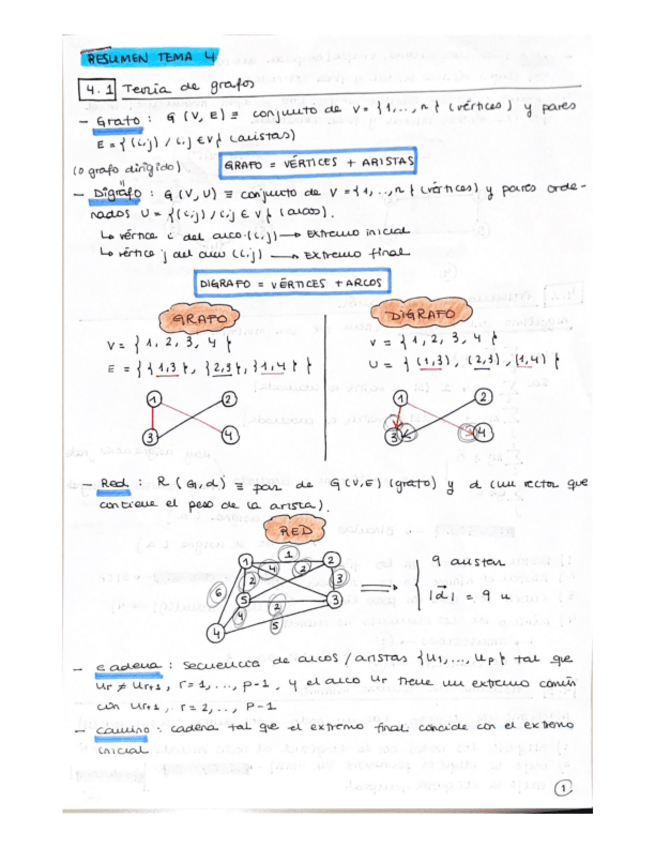 RESUMEN TEMA 4
4.1 Teoría de grafos
- Grafo : G (V, E) ≡ conjunto de V = {1, ..., n} (vértices) y pares
E = {(i,j) / i,j ∈ V} (aristas)
(o grafo dirigido) GRAFO = VÉRTICES + ARISTAS
- Digrafo : G (V, U) ≡ conjunto de V = {1, .., n} (vértices) y pares orde-
nados U = {(i,j) / i,j ∈ V} (arcos).
↳ vértice i del arco (i,j) → Extremo inicial
↳ vértice j del arco (i,j) → Extremo final
DIGRAFO = VÉRTICES + ARCOS
GRAFO
V = {1, 2, 3, 4}
E = {{1,3}, {2,3}, {1,4}}
1 2
3 4
DIGRAFO
V = {1, 2, 3, 4}
U = {(1,3), (2,3), (1,4)}
1 2
3 4
- Red : R (G, d) ≡ par de G(V,E) (grafo) y d (un vector que
contiene el peso de la arista).
RED
1 1 2
4 2
6 2 3
5 3
4 2
4 5
9 aristas
|d| = 9 u
- cadena : secuencia de arcos / aristas {u1, ..., up} tal que
ur ≠ ur+1, r = 1, ..., p-1, y el arco ur tiene un extremo común
con ur+1, r = 2, .., p-1
- camino : cadena tal que el extremo final coincide con el extremo
inicial
1